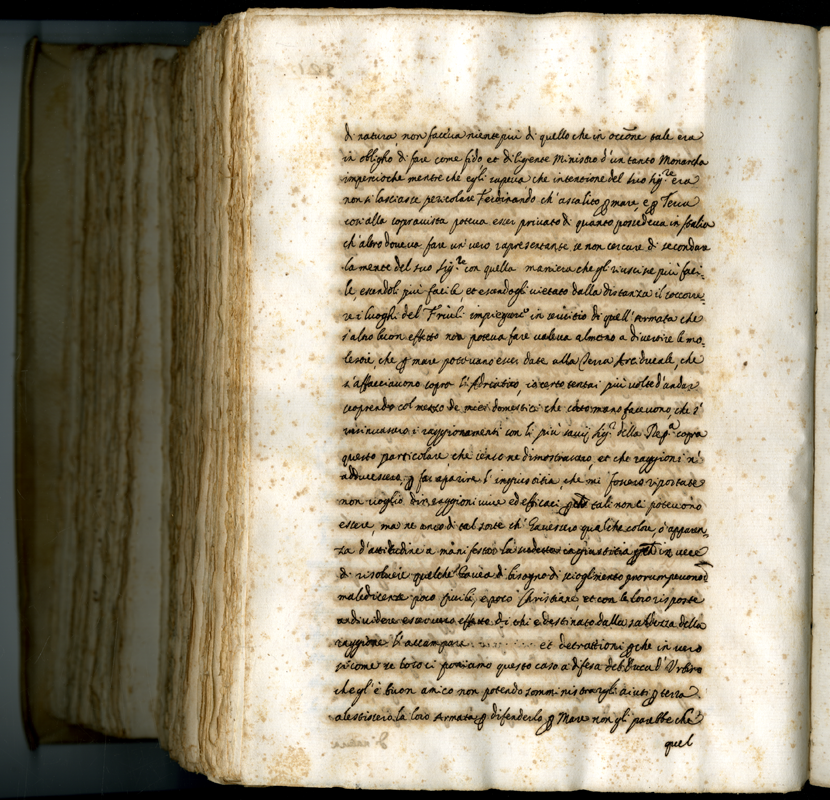 di natura, non faceva niente più di quello che in occõne tale era
in obligho di fare come fido et diligente Ministro d'un tanto Monarcha
imperioche mentre che egli sapeva che intentione del suo Sig.re era
non si lasciasse pericolare Ferdinando ch'assalito ꝑ mare, e ꝑ Terra
con alla sopravista poteva esser privato di quanto possedeva in Italia
ch'altro doveva fare un vero rapresentante se non cercare di secondare
la mente del suo Sig.re con quella maniera che gli riuscisse più faci=
le essendoli più facile, et essendogli vietato dalla distanza il soccorre=
re i luoghi del Friuli impiegare in servitio di quell'Armata che
s'altro buon effetto non poteva fare valeva almeno a divertire le mo=
lestie, che ꝑ mare potevano esser date alla Terra Arciducale, che
s'affacciavono sopra l'Adriatico, io certo tentai più volte d'andar
scoprendo col mezzo de miei domestici che sotto mano facevono, che s'
i raggionamenti con li più savij Sig.ri della Rep.ca sopra
questo particolare, che senso ne dimostrassero, et che raggioni n'
adducessero, ꝑ far aparire l'ingiustitia, che mi fossero riportate
non voglio dir raggioni vive ed efficaci tali non li potevono
essere, ma ne anco di tal sorte ch'havessero qualche color, o apparen=
za d'attitudine a manifestar la ingiustitia in vece
di risolvere qualche haveva di bisogno di scioglimento prorumpevono
maledicenze poco civili, e poco Christiane, et con le loro risposte
effetto di chi è destinato dalla saldezza della
raggione l'accampare . . . . . . . et detrattioni ꝑche in vero
sicome se loro ci poniamo questo caso a difesa del Duca d'Urbino
che gl'è buon amico non potendo somministrargli aiuti ꝑ terra
alestissero la loro Armata ꝑ difenderlo ꝑ Mare non gli parebbe che
quel